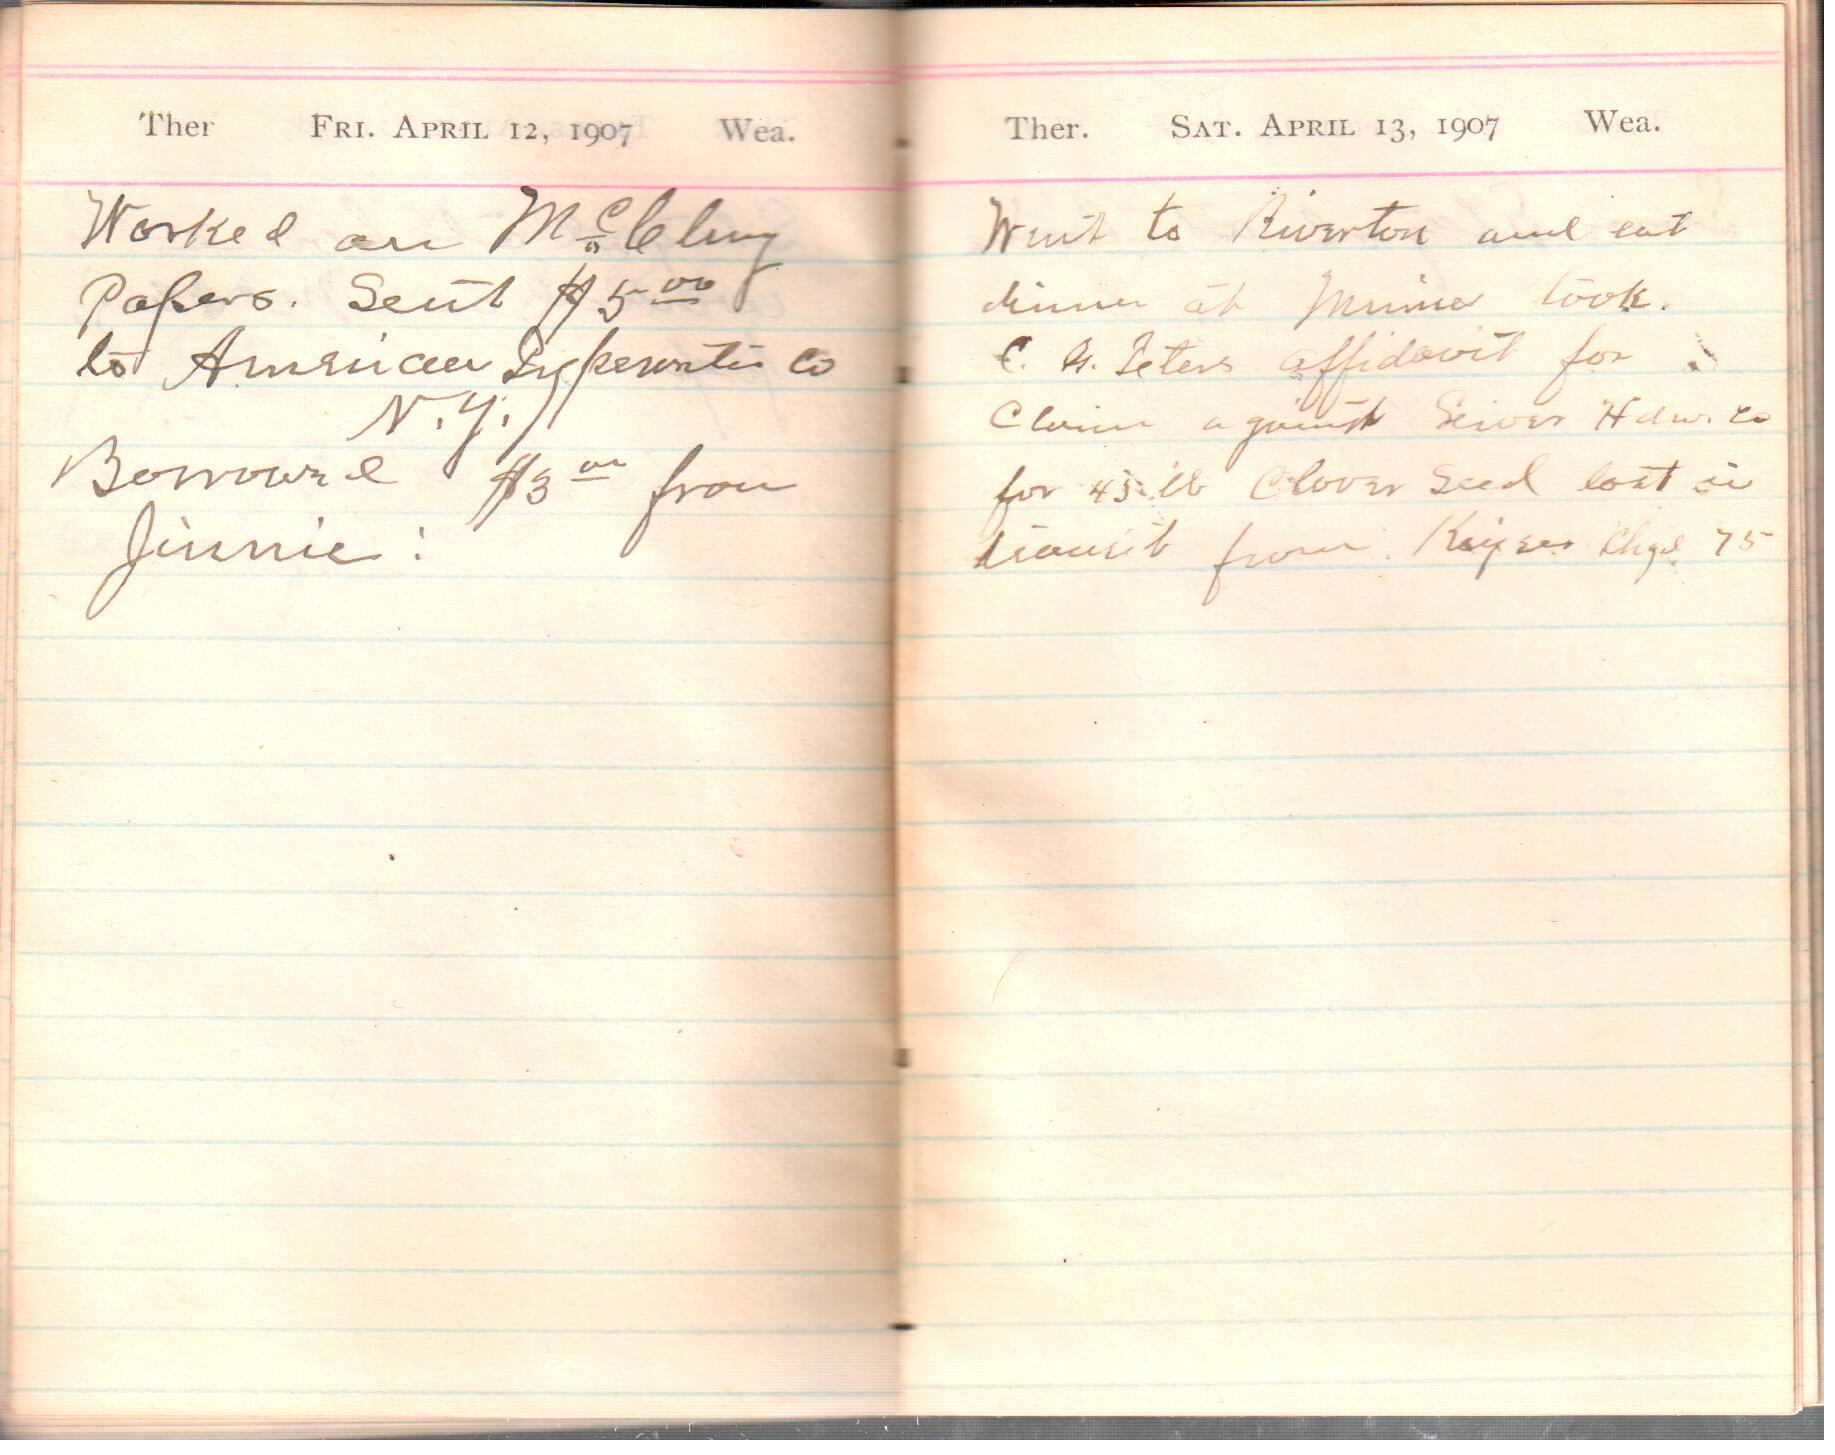 Ther Fri. April 12, 1907 Wea.
Worked on McClung
Papers. Sent $5.00
to American Typewriter Co
N.Y.
Borrowed $3.00 from
Jinnie :
Ther. Sat. April 13, 1907 Wea.
Went to Riverton and eat
dinner at took.
C. G. Teters affidavit for
Claim against Hdw. Co
for 45 lb Clover Seed lost in
transit from Keyser Chgd. 75